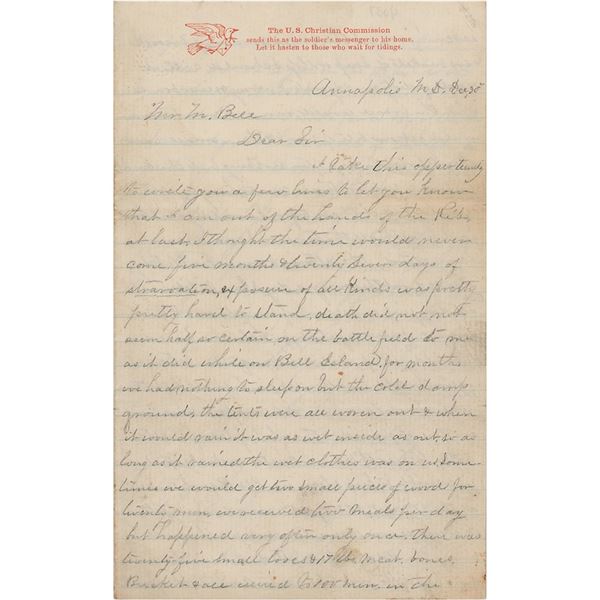 The U. S. Christian Commission
sends this as the soldier's messenger to his home.
Let it hasten to those who wait for tidings.
Annapolis M.D. Dec, 30
Mr. M. Bell
Dear Sir
I take this opportunity
to write you a few lines to let you know
that I am out of the hands of the Rebs
at last, I thought the time would never
come, five months & twenty seven days of
starvation, exposure of all kinds was pretty
pretty hard to stand, death did not not
seem half so certain on the battlefield to me
as it did while on Bell Esland. for months
we had nothing to sleep on but the cold damp
ground, the tents were all woren out & when
it would rain it was as wet inside as out, so as
long as it rained the wet clothes was on us, Some-
times we would get two small peices of wood for
twenty men, we received two meals per day
but happened very often only once, there was
twenty five small loves & 17 lbs, meat, bones,
Bucket & all to 100 men, in the